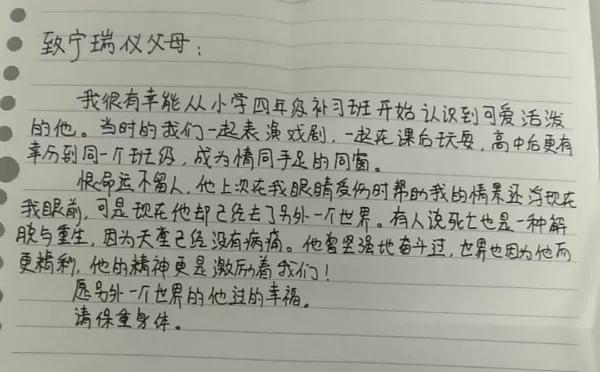 致宁瑞仪父母：
我很有幸能从小学四年级补习班开始认识到可爱活泼
的他。当时的我们一起表演戏剧，一起在课后玩耍，高中后更有
幸分到同一个班级，成为情同手足的同窗。
恨命运不留人，他上次在我眼睛受伤时帮助我的情景还浮现在
我眼前，可是现在他却已经去了另外一个世界。有人说死亡也是一种解
脱与重生，因为天堂已经没有病痛。他曾坚强地奋斗过，世界也因为他而
更精彩，他的精神更是激励着我们！
愿另外一个世界的他过的幸福。
请保重身体。